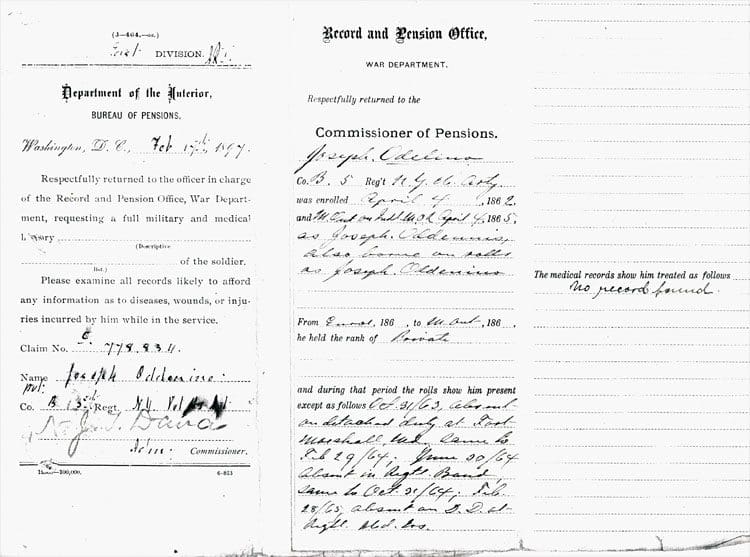 (3—464.—oc.)
DIVISION.
Department of the Interior,
BUREAU OF PENSIONS,
Washington, D. C., Feb 17th, 1897.
Respectfully returned to the officer in charge
of the Record and Pension Office, War Depart-
ment, requesting a full military and medical
history
(Descriptive
of the soldier.
list.)
Please examine all records likely to afford
any information as to diseases, wounds, or inju-
ries incurred by him while in the service.
Claim No. C. 778,834.
Name Joseph
Pvt.
Co. B Regt. N.Y. Vol
Commissioner.
Record and Pension Office,
WAR DEPARTMENT.
Respectfully returned to the
Commissioner of Pensions.
Joseph Odelino
Co. B. 5 Reg't N.Y. H. Arty
was enrolled April 4, 1862
and M. Out on April 4, 1865,
as Joseph Oldennis,
also borne on rolls
as Joseph Oldenino
From Enrol, 186 , to M. Out, 186 ,
he held the rank of Private
and during that period the rolls show him present
except as follows Oct. 31/63, absent
on detached duty at Fort
Marshall Md. same to
Feb 29/64; June 30/64
absent in Regtl. Band,
same to Oct 31/64; Feb.
28/65, absent on D. D. at
Regtl. Hd. Qrs.
The medical records show him treated as follows
No record found.